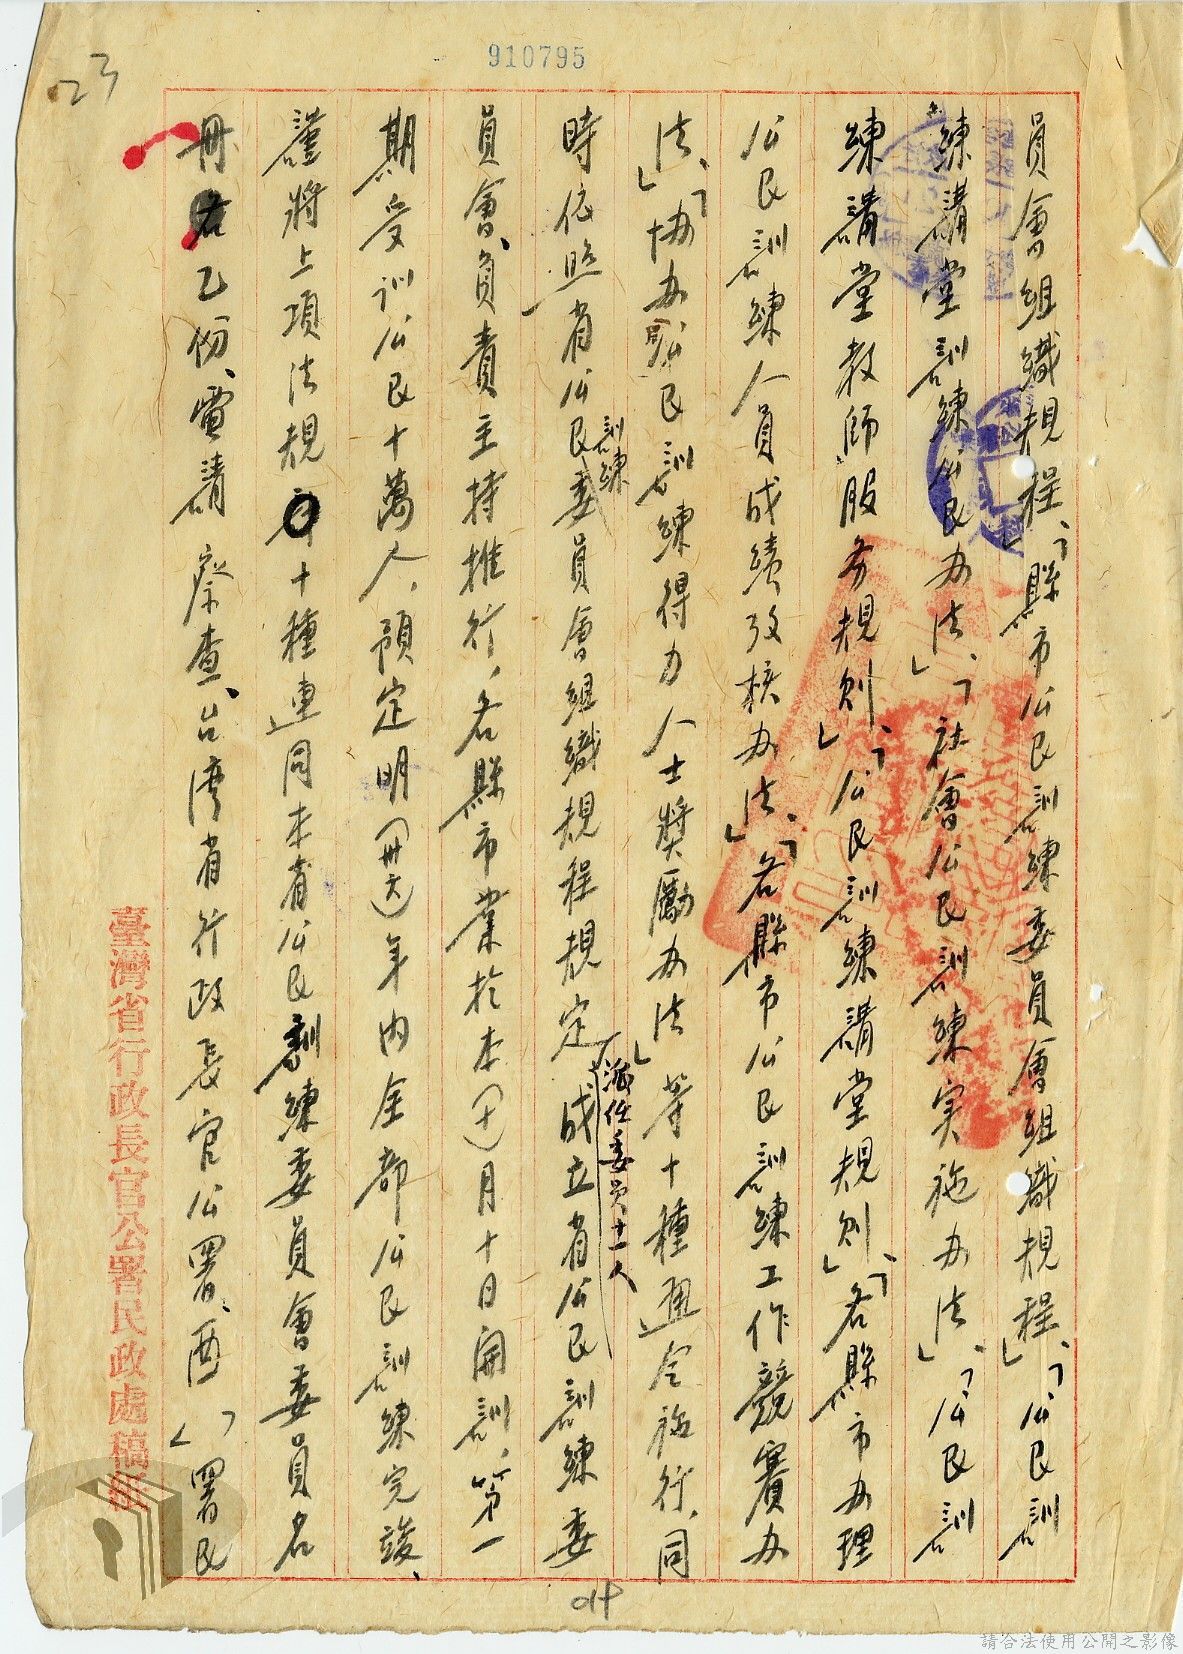 910795
23
員會組織規程」、「縣市公民訓練委員會組織規程」、「公民訓
練講堂訓練公民办法」、「社會公民訓練実施办法」、「公民訓
練講堂教師服务規則」、「公民訓練講堂規則」、「各縣市办理
公民訓練人員成績攷核办法」、「各縣市公民訓練工作競賽办
法」、「協办公民訓練得力人士獎勵办法」等十種通令施行、同
時依照省公民訓練委員會組織規程規定成立省公民訓練委
派任委員十一人
員會、負責主持推行，各縣市業於本(十)月十日開訓，第一
期受訓公民十萬人，預定明(卅六)年內全部公民訓練完竣、
謹將上項法規十種連同本省公民訓練委員會委員名
冊乙份、電請 察查、台湾省行政長官公署、酉「」署民
臺灣省行政長官公署民政處稿紙
請合法使用公開之影像